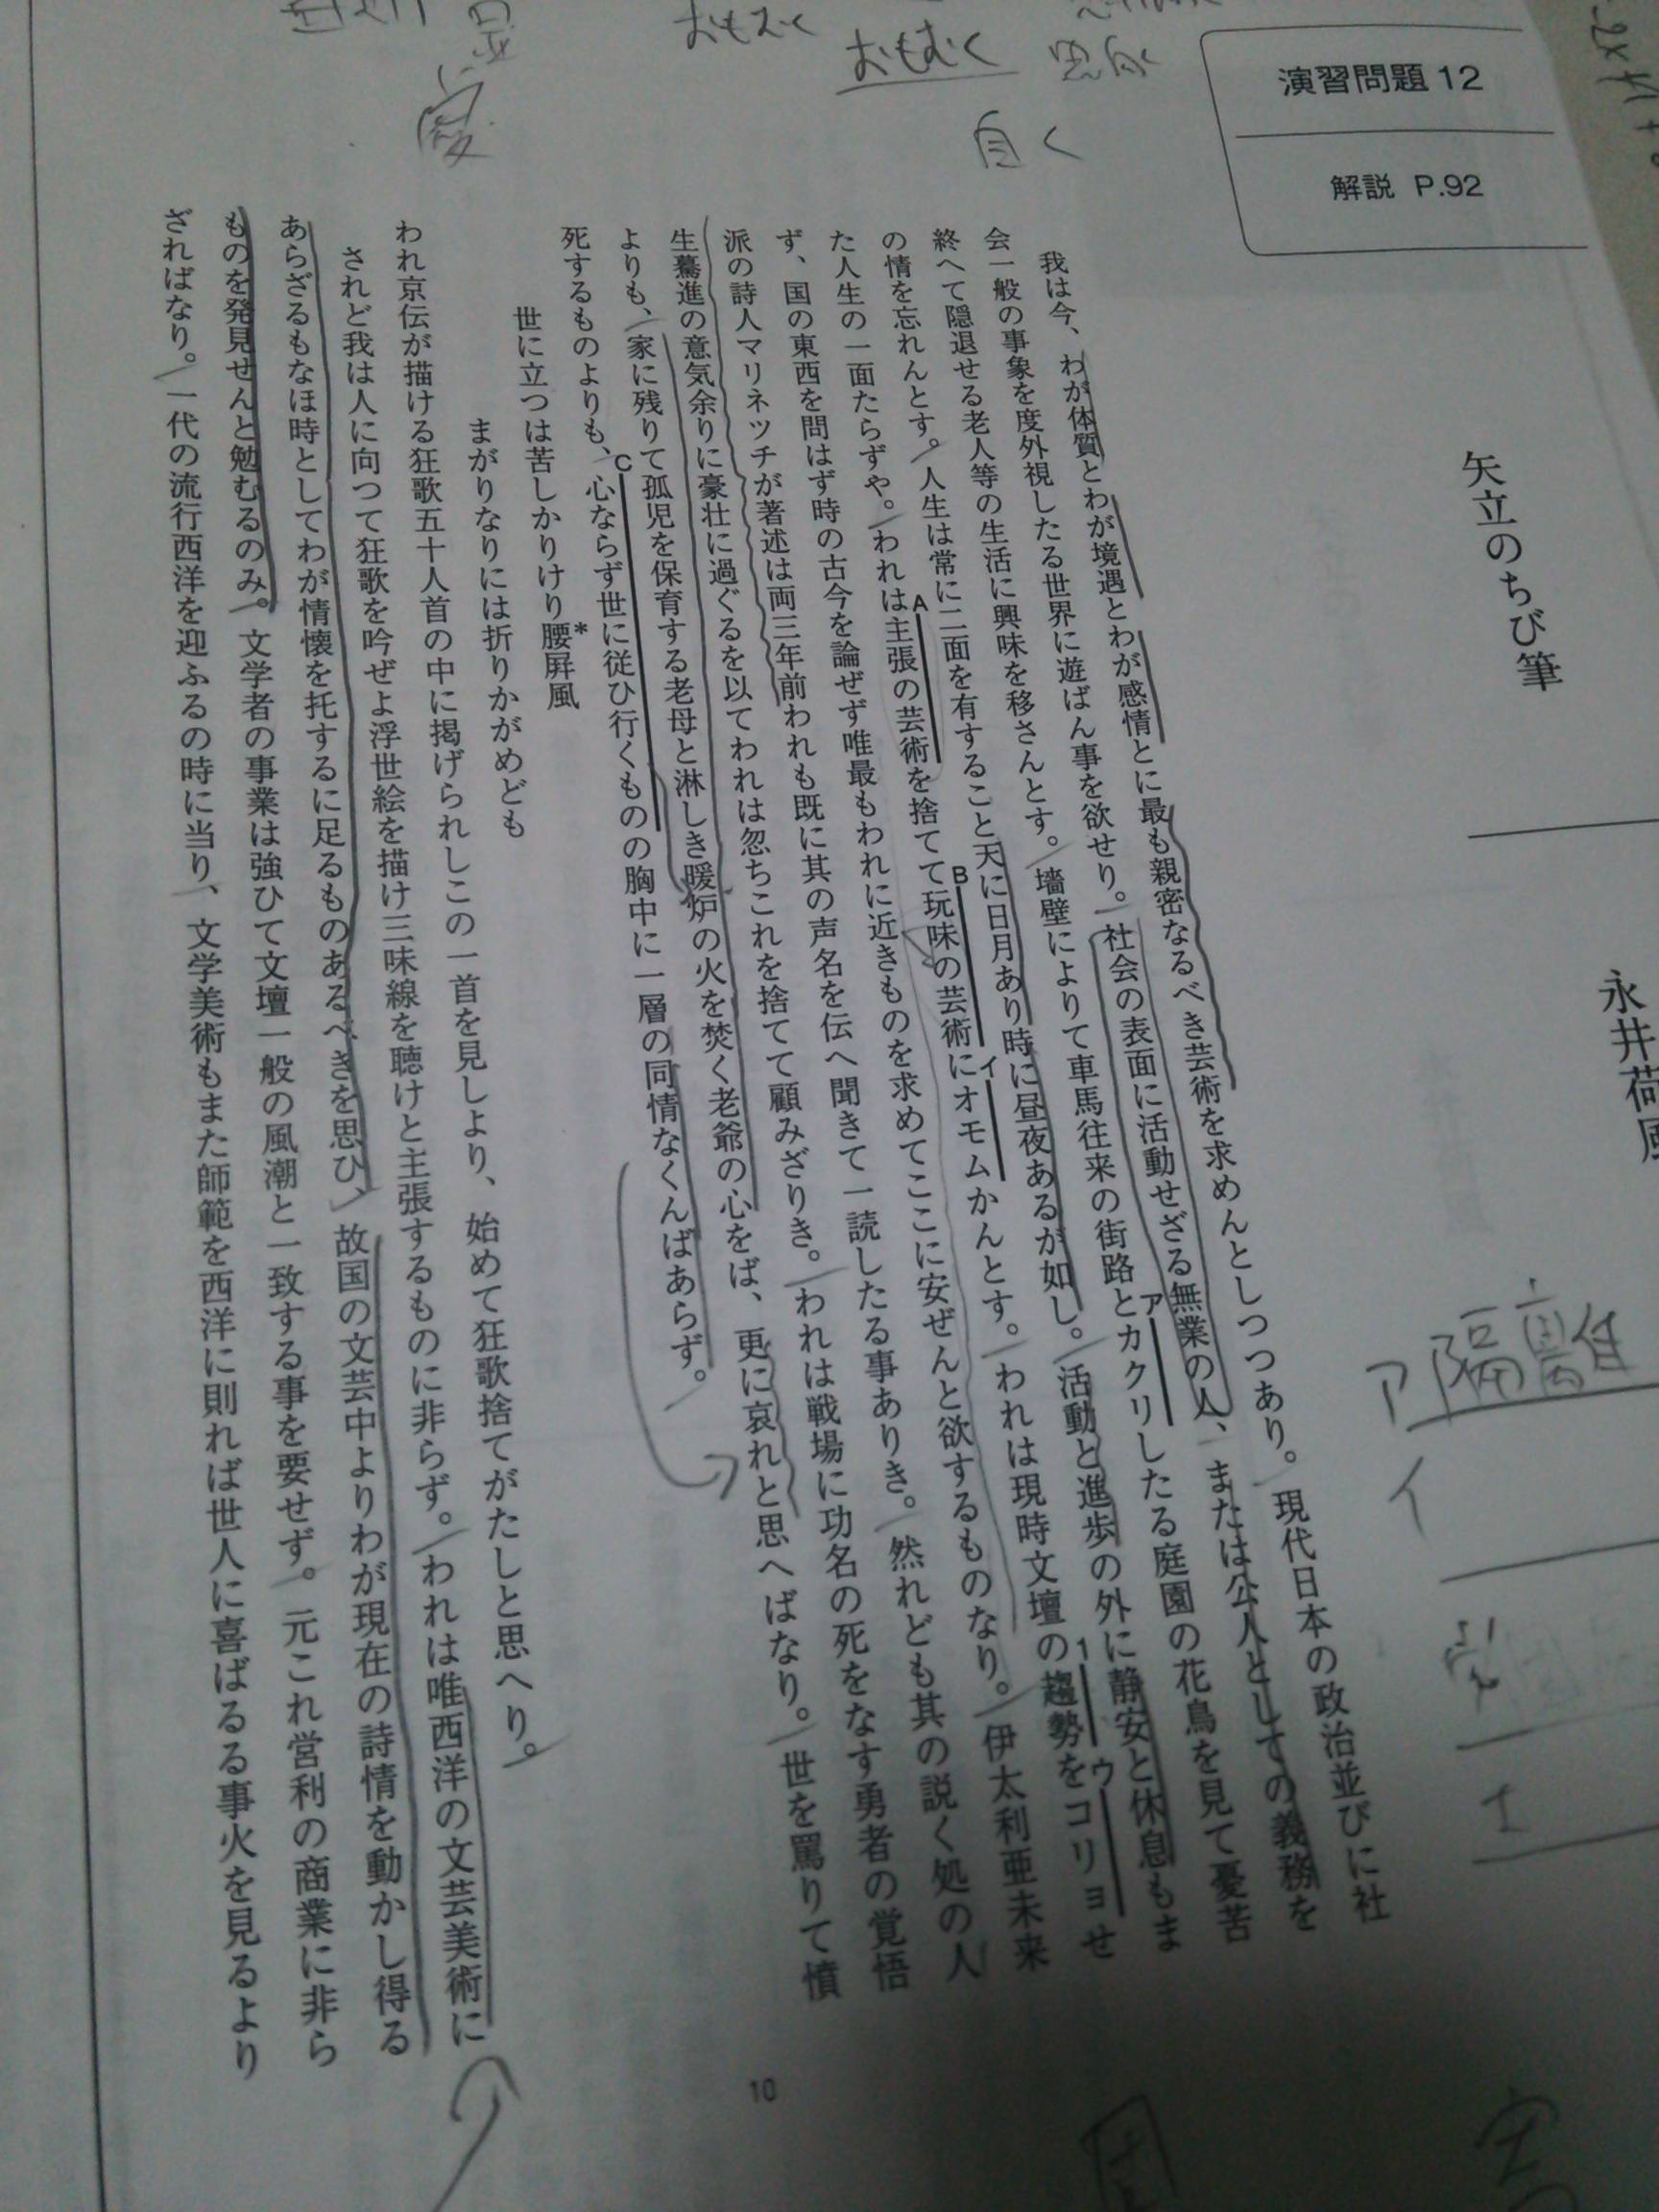 演習問題 12
解説 P.92
矢立のちび筆
永井荷風
我は今、わが体質とわが境遇とわが感情とに最も親密なるべき芸術を求めんとしつつあり。現代日本の政治並びに社
会一般の事象を度外視したる世界に遊ばん事を欲せり。社会の表面に活動せざる無業の人、または公人としての義務を
終へて隠退せる老人等の生活に興味を移さんとす。墻壁によりて車馬往来の街路とアカクリしたる庭園の花鳥を見て憂苦
の情を忘れんとす。人生は常に二面を有すること天に日月あり時に昼夜あるが如し。活動と進歩の外に静安と休息もま
た人生の一面たらずや。われはA主張の芸術を捨ててB玩味の芸術にイオモムかんとす。われは現時文壇の1趨勢をウコリョせ
ず、国の東西を問はず時の古今を論ぜず唯最もわれに近きものを求めてここに安ぜんと欲するものなり。伊太利亜未来
派の詩人マリネッチが著述は両三年前われも既に其の声名を伝へ聞きて一読したる事ありき。然れども其の説く処の人
生驀進の意気余りに豪壮に過ぐるを以てわれは忽ちこれを捨てて顧みざりき。われは戦場に功名の死をなす勇者の覚悟
よりも、家に残りて孤児を保育する老母と淋しき暖炉の火を焚く老爺の心をば、更に哀れと思へばなり。世を罵りて憤
死するものよりも、C心ならず世に従ひ行くものの胸中に一層の同情なくんばあらず。
世に立つは苦しかりけり腰屏風*
まがりなりには折りかがめども
われ京伝が描ける狂歌五十人首の中に掲げられしこの一首を見しより、始めて狂歌捨てがたしと思へり。
されど我は人に向つて狂歌を吟ぜよ浮世絵を描け三味線を聴けと主張するものに非らず。われは唯西洋の文芸美術に
あらざるもなほ時としてわが情懐を托するに足るものあるべきを思ひ、故国の文芸中よりわが現在の詩情を動かし得る
ものを発見せんと勉むるのみ。文学者の事業は強ひて文壇一般の風潮と一致する事を要せず。元これ営利の商業に非ら
ざればなり。一代の流行西洋を迎ふるの時に当り、文学美術もまた師範を西洋に則れば世人に喜ばるる事火を見るより
10
おもむく
ア 隔離
イ